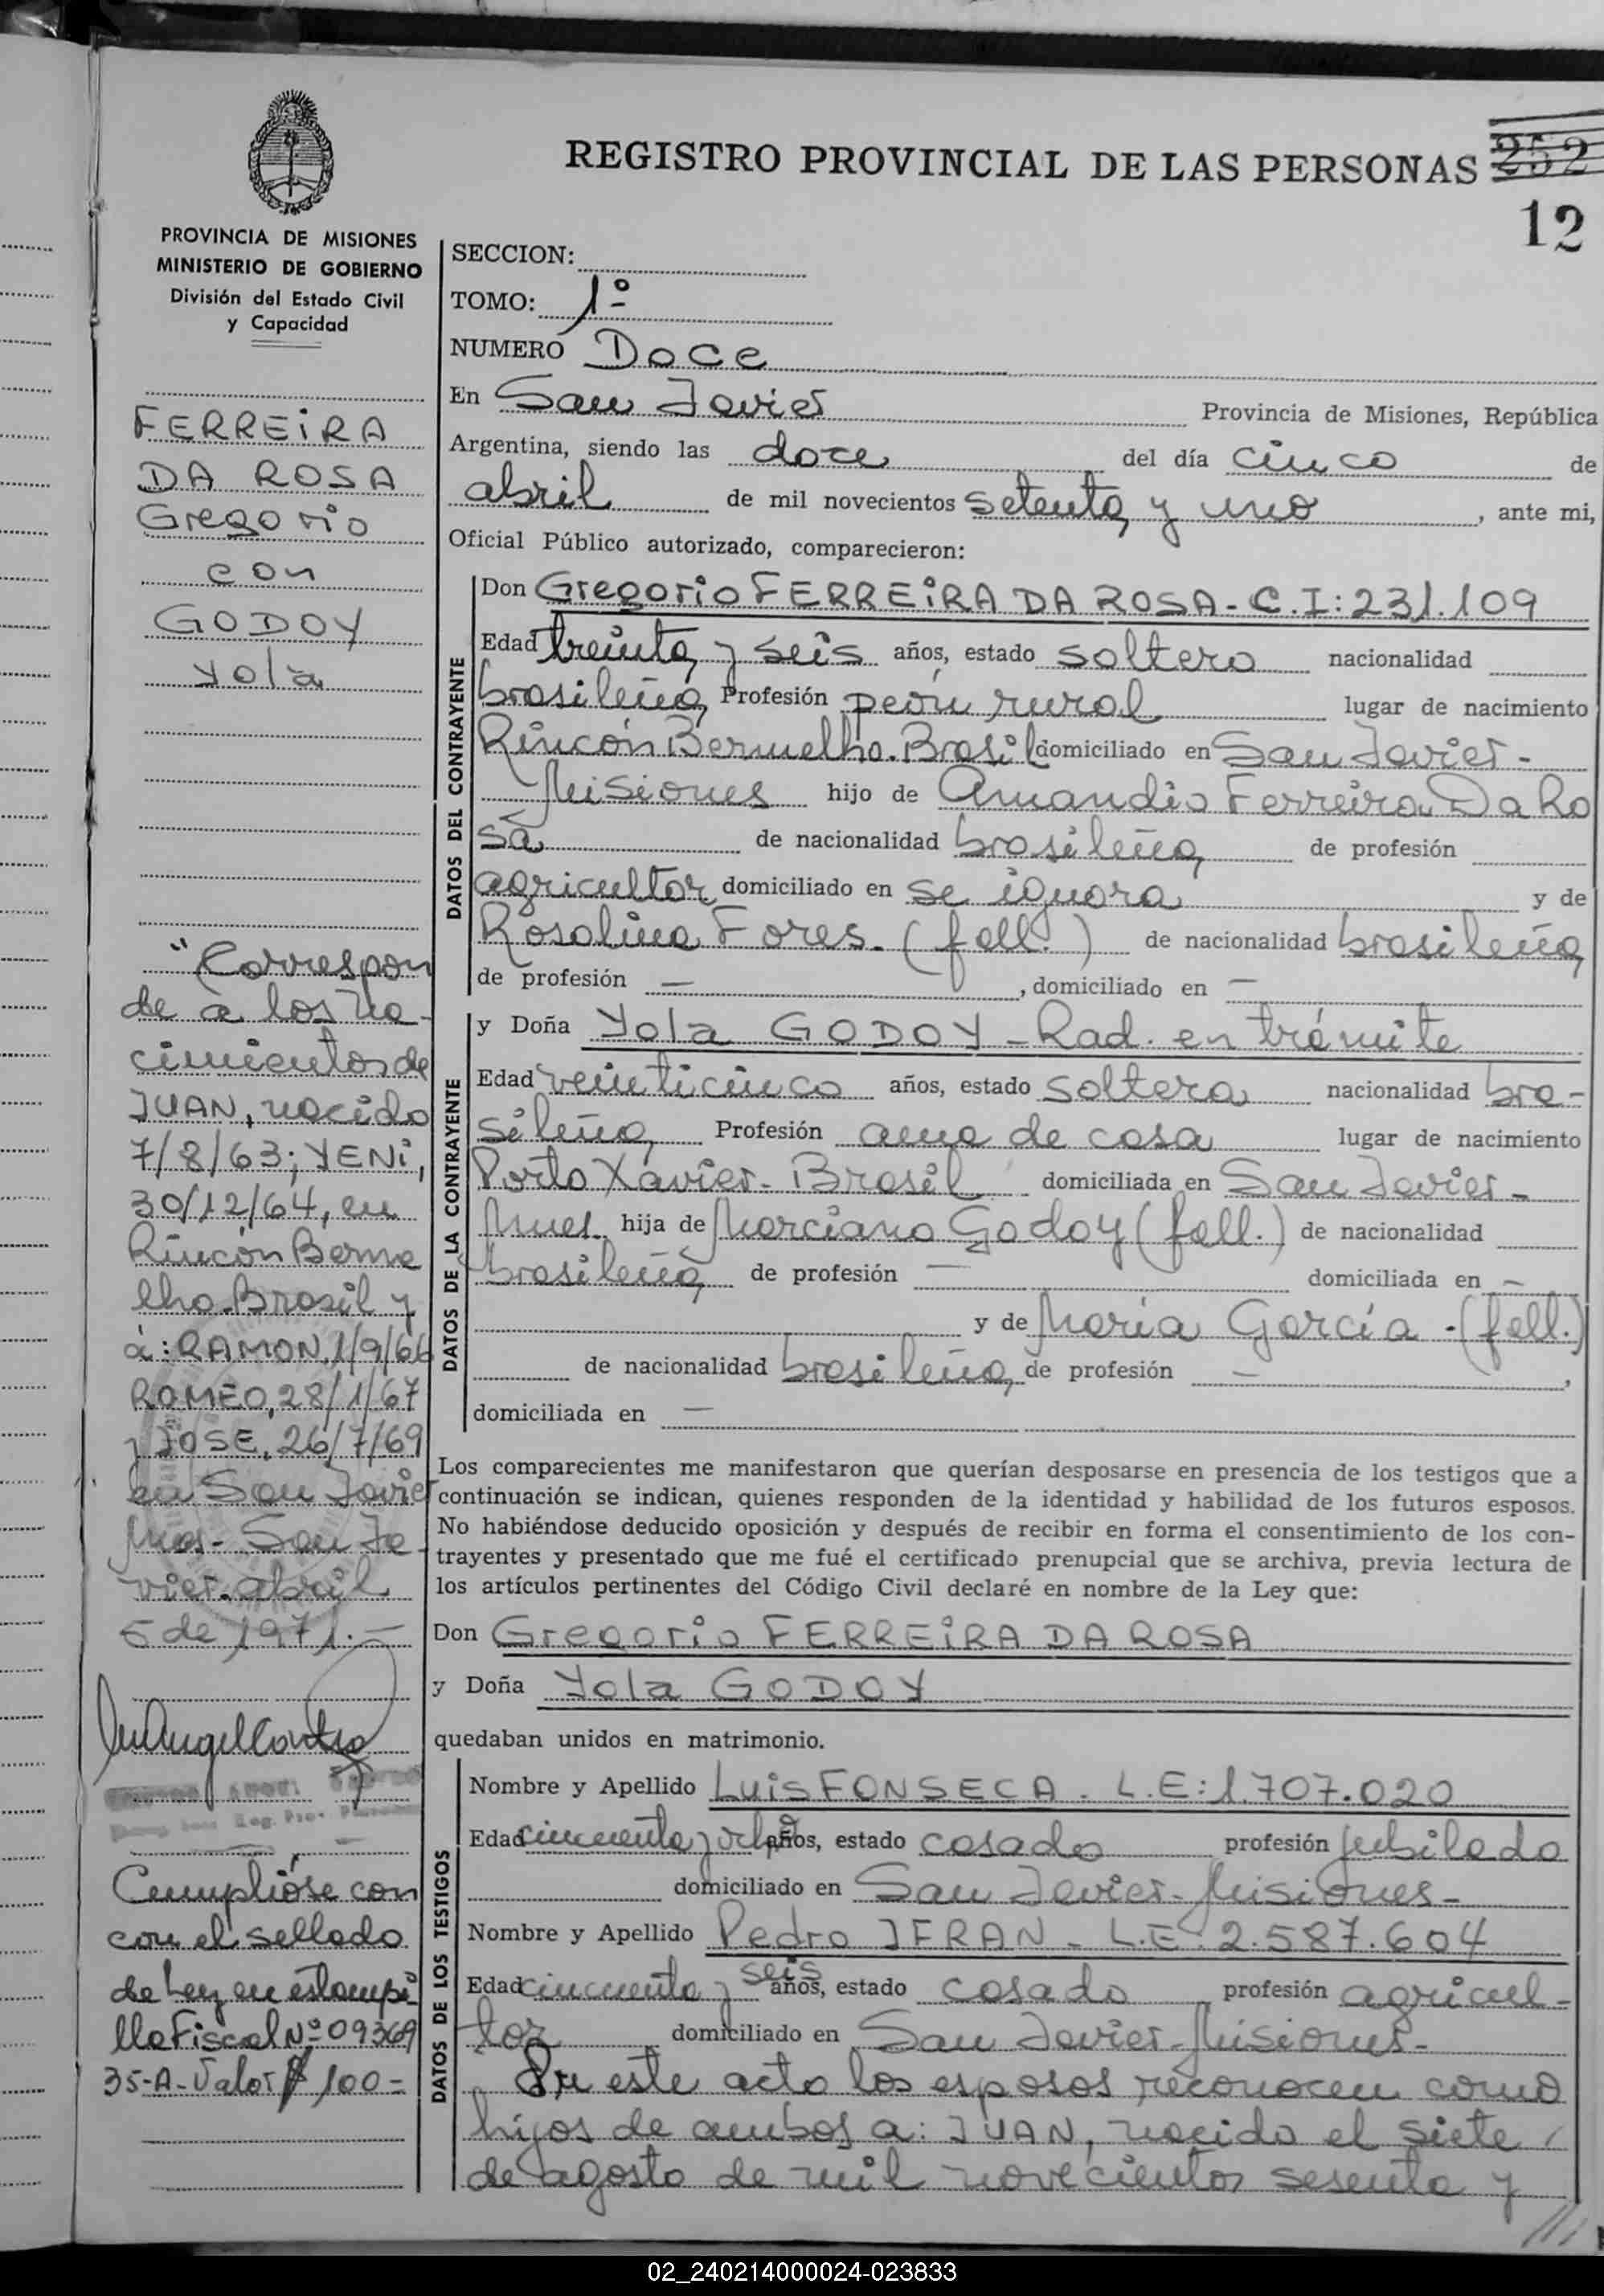 REGISTRO PROVINCIAL DE LAS PERSONAS 252
12
PROVINCIA DE MISIONES
MINISTERIO DE GOBIERNO
División del Estado Civil
y Capacidad
FERREIRA
DA ROSA
Gregorio
con
GODOY
Yola
"Correspon
de a los na-
cimientos de
JUAN, nacido
7/8/63; YENI,
30/12/64, en
Rincón Berme
lho-Brasil y
a: RAMON, 1/9/66
ROMEO, 28/1/67
y JOSE, 26/7/69
en San Javier
Mnes- San Ja-
vier, abril
5 de 1971.-
Cumplióse con
con el sellado
de Ley en estampi
lla Fiscal Nº 09369
35-A-Valor $ 100-
SECCION:
TOMO: 1º
NUMERO Doce
En San Javier Provincia de Misiones, República
Argentina, siendo las doce del día cinco de
abril de mil novecientos setenta y uno, ante mi,
Oficial Público autorizado, comparecieron:
DATOS DEL CONTRAYENTE
Don Gregorio FERREIRA DA ROSA - C.I: 231.109
Edad treinta y seis años, estado soltero nacionalidad
brasileña Profesión peón rural lugar de nacimiento
Rincón Bermelho. Brasil domiciliado en San Javier-
Misiones hijo de Amandio Ferreira Da Ro
sa de nacionalidad brasileña de profesión
agricultor domiciliado en se ignora y de
Rosalina Fores. (fall.) de nacionalidad brasileña
de profesión — , domiciliado en —
DATOS DE LA CONTRAYENTE
y Doña Yola GODOY - Rad. en trámite
Edad veinticinco años, estado soltera nacionalidad bra-
sileña Profesión ama de casa lugar de nacimiento
Porto Xavier- Brasil domiciliada en San Javier-
Mnes. hija de Marciano Godoy (fall.) de nacionalidad
brasileña de profesión — domiciliada en —
y de María García - (fall.)
de nacionalidad brasileña de profesión — ,
domiciliada en —
Los comparecientes me manifestaron que querían desposarse en presencia de los testigos que a
continuación se indican, quienes responden de la identidad y habilidad de los futuros esposos.
No habiéndose deducido oposición y después de recibir en forma el consentimiento de los con-
trayentes y presentado que me fué el certificado prenupcial que se archiva, previa lectura de
los artículos pertinentes del Código Civil declaré en nombre de la Ley que:
Don Gregorio FERREIRA DA ROSA
y Doña Yola GODOY
quedaban unidos en matrimonio.
DATOS DE LOS TESTIGOS
Nombre y Apellido Luis FONSECA. L.E: 1.707.020
Edad cincuenta y ocho años, estado casado profesión jubilado
domiciliado en San Javier- Misiones-
Nombre y Apellido Pedro IFRAN - L.E. 2.587.604
Edad cincuenta y seis años, estado casado profesión agricul-
tor domiciliado en San Javier-Misiones-
En este acto los esposos reconocen como
hijos de ambos a: JUAN, nacido el siete
de agosto de mil novecientos sesenta y
02_240214000024-023833